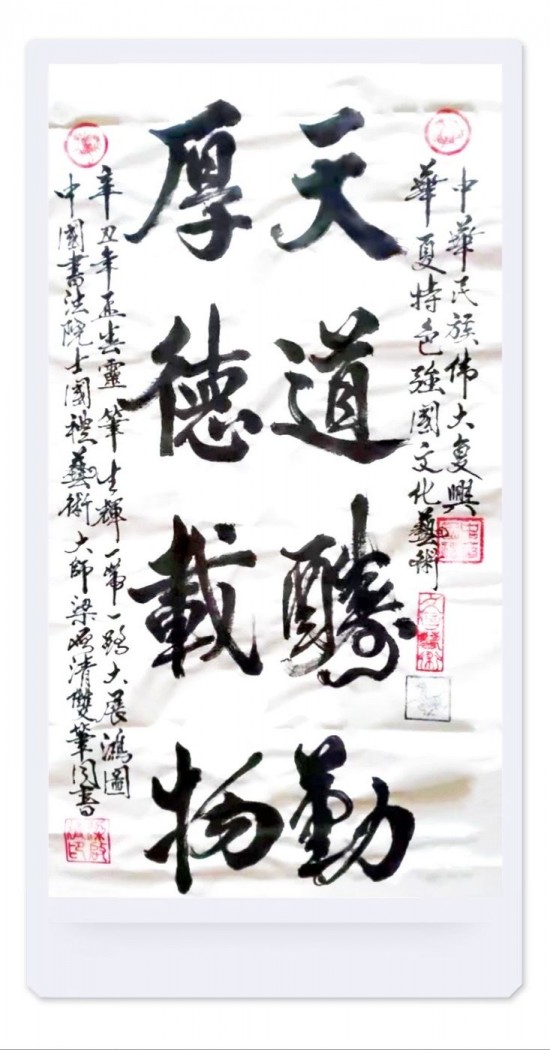 中華民族偉大复興
華夏特色強國文化藝術
天道醻勤
厚德載物
辛丑年孟春靈筆生輝一帶一路大展鴻圖
中國書法院士國禮藝術大師梁清雙筆同書